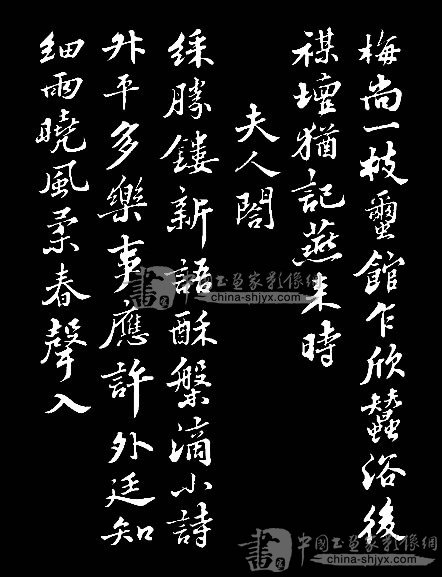 梅尚一枝蠒館乍欣蠶浴後
禖壇猶記燕来時
夫人閤
綵勝鏤新語酥槃滴小詩
升平多樂事應許外廷知
細雨曉風柔春聲入
china-shjyx.com
www.china-shjyx.com